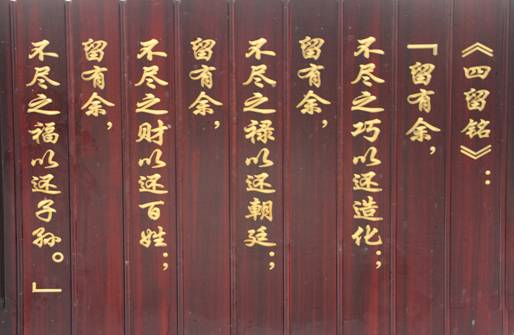 《四留铭》：
「留有余，
不尽之巧以还造化；
留有余，
不尽之禄以还朝廷；
留有余，
不尽之财以还百姓；
留有余，
不尽之福以还子孙。」